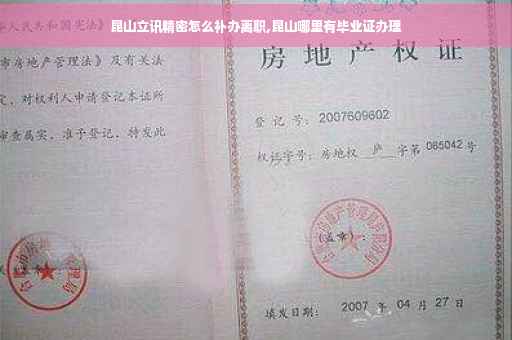 昆山立讯精密怎么补办离职,昆山哪里有毕业证办理
人民共和国宪法》
市房地产管理法》及有关法
定,对权利人申请登记本证所
审查属实,准予登记,特发此
房地产权证
登记号:2007609602
权证字号:房地权 庐 字第 085042 号
(盖章):
填发日期: 2007 年 04 月 27 日